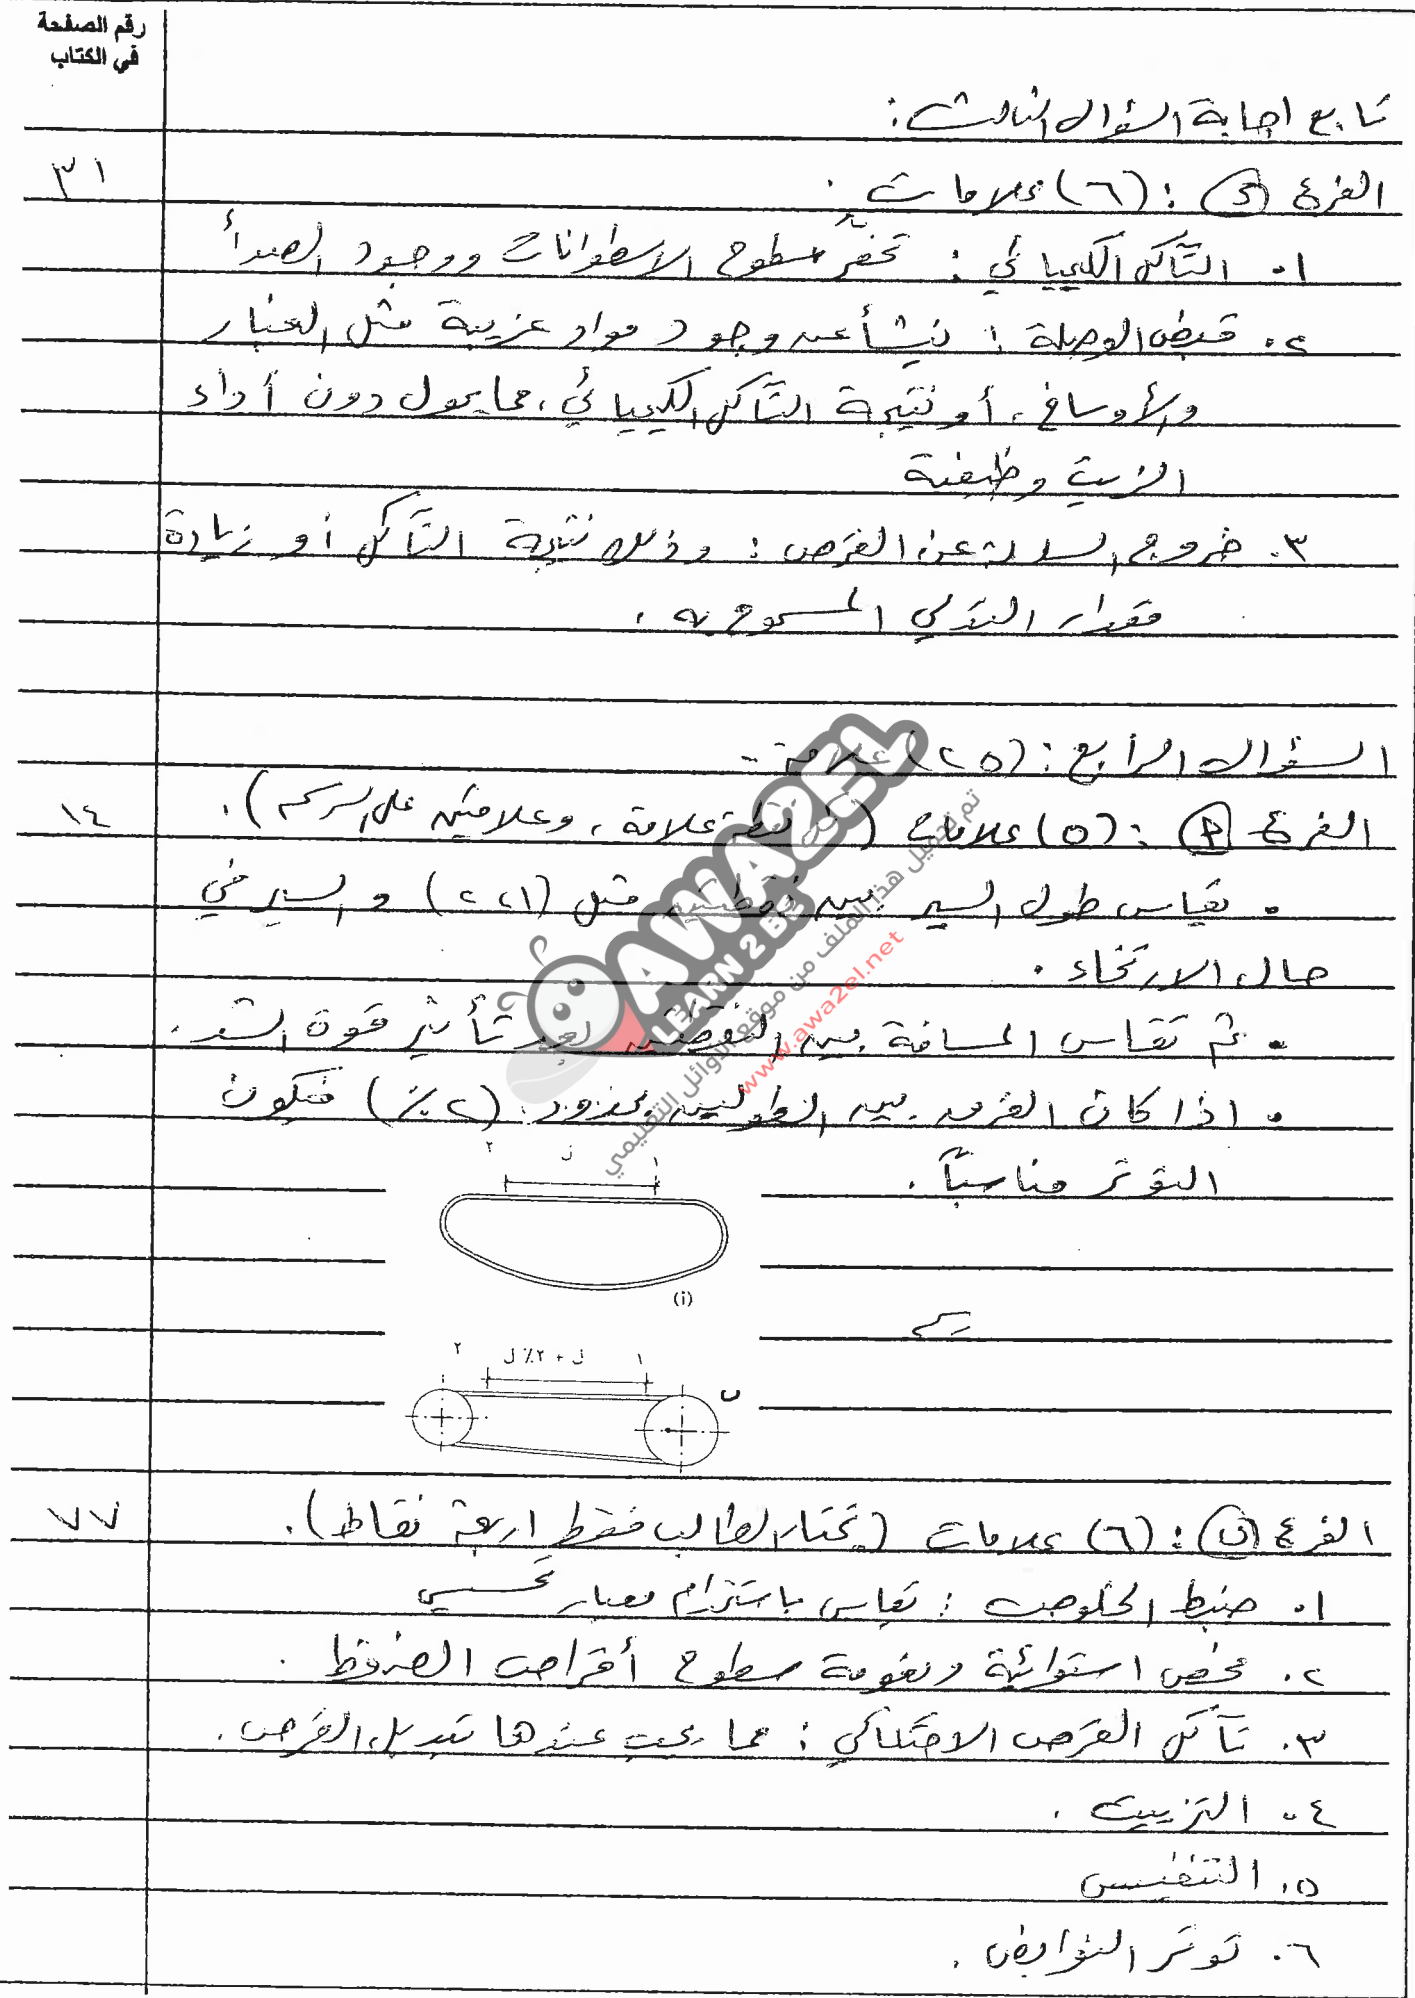 رقم الصفحة
في الكتاب
تابع اجابة السؤال الثالث :
الفرع ج : (٦) علامات .
٣١
١. التآكل الكيميائي : تحفّر سطوح الاسطوانات ووجود الصدأ
٢. قبض الوصلة : ينشأ عن وجود مواد غريبة مثل الغبار
والأوساخ ، أو نتيجة التآكل الكيميائي ، مما يحول دون أداء
الزيت وظيفته
٣. خروج السلسلة عن القرص : وذلك نتيجة التآكل أو زيادة
مقدار التدلي المسموح به .
السؤال الرابع : (٢٥) علامة .
الفرع أ : (٥) علامات (كل نقطة علامة ، وعلامتين على الرسم ) .
١٤
• تقاس طول السير بين نقطتين مثل (٢،١) و السير في
حال الارتخاء .
• ثم تقاس المسافة بين النقطتين بعد تأثير قوة الشد .
• اذا كان الفرق بين الطولين بحدود (٢٪) فيكون
التوتر مناسباً .
٢ ل ١
(أ)
٢ ل + ٢٪ ل ١
ب
الفرع ب : (٦) علامات (يختار الطالب فقط اربعة نقاط ) .
٧٧
١. ضبط الخلوص : تقاس باستخدام معيار تحسسي
٢. فحص استوائية ونعومة سطوح أقراص الضغط .
٣. تآكل القرص الاحتكاكي : مما يجب عندها تبديل القرص .
٤. التزييت .
٥. التنفيس
٦. توتر النوابض .
AWA2EL
LEARN 2 BE
تم تحميل هذا الملف من موقع الأوائل التعليمي
www.awa2el.net